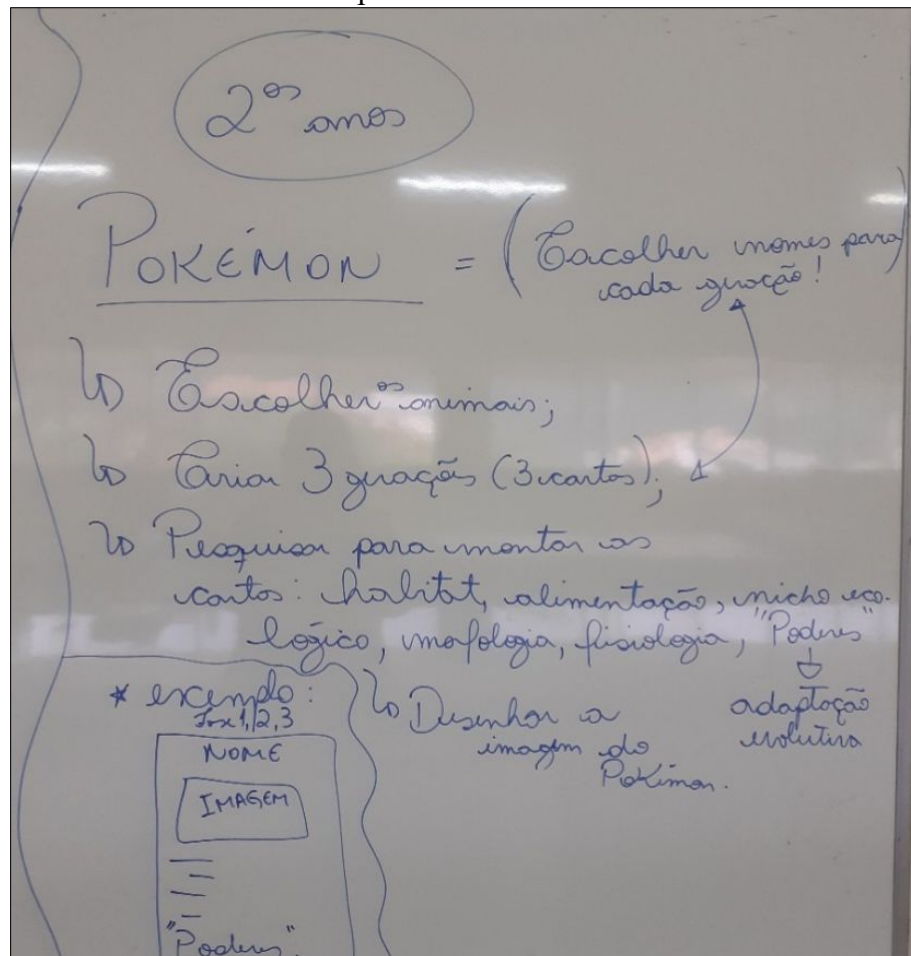 2ºs anos
POKÉMON = (Escolher nomes para
cada geração!)
↳ Escolher os animais;
↳ Criar 3 gerações (3 cartas);
↳ Pesquisar para montar as
cartas: habitat, alimentação, nicho eco-
lógico, morfologia, fisiologia, "Poderes"
adaptação
evolutiva
↳ Desenhar a
imagem do
Pokémon.
* exemplo:
1, 2, 3
NOME
IMAGEM
"Poderes"